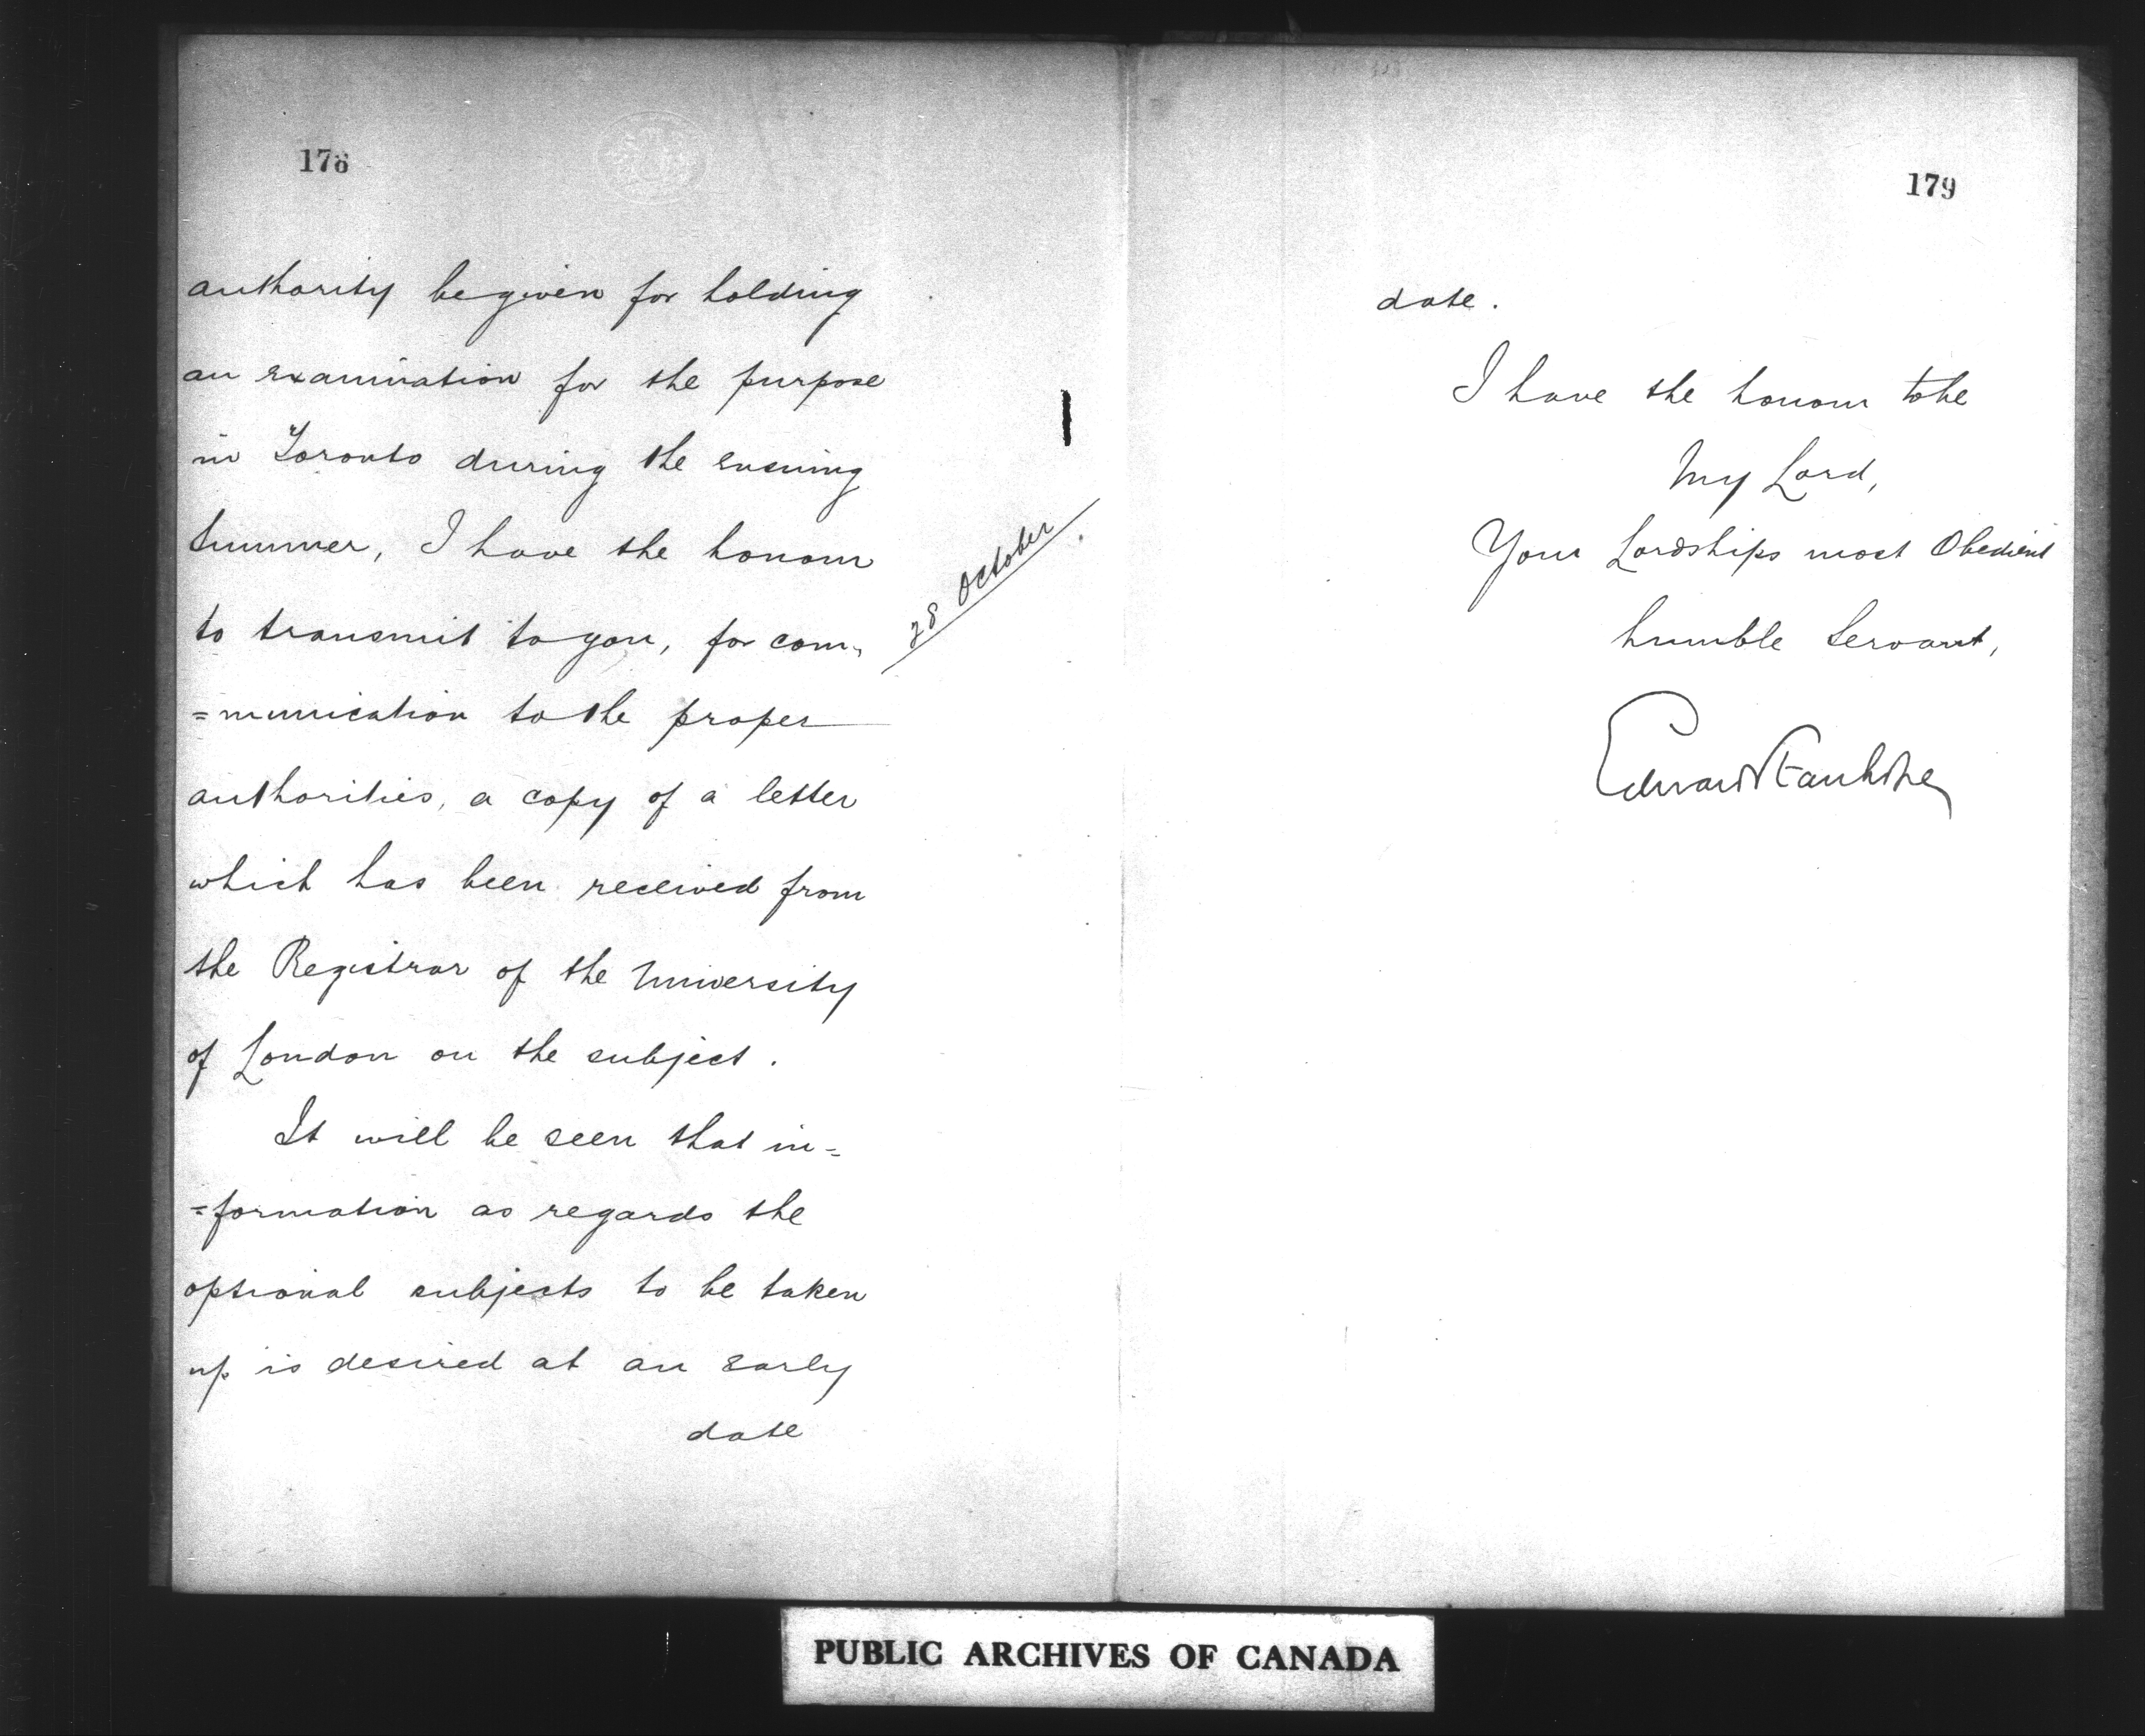 178
authority be given for holding
an examination for the purpose
in Toronto during the ensuing
Summer, I have the honour
to transmit to you, for com=
=munication to the proper
authorities, a copy of a letter
which has been received from
the Registrar of the University
of London on the subject.
It will be seen that in=
=formation as regards the
optional subjects to be taken
up is desired at an early
date
28 October
179
date.
I have the honour to be
My Lord,
Your Lordships most Obedient
humble Servant,
Edward
PUBLIC ARCHIVES OF CANADA